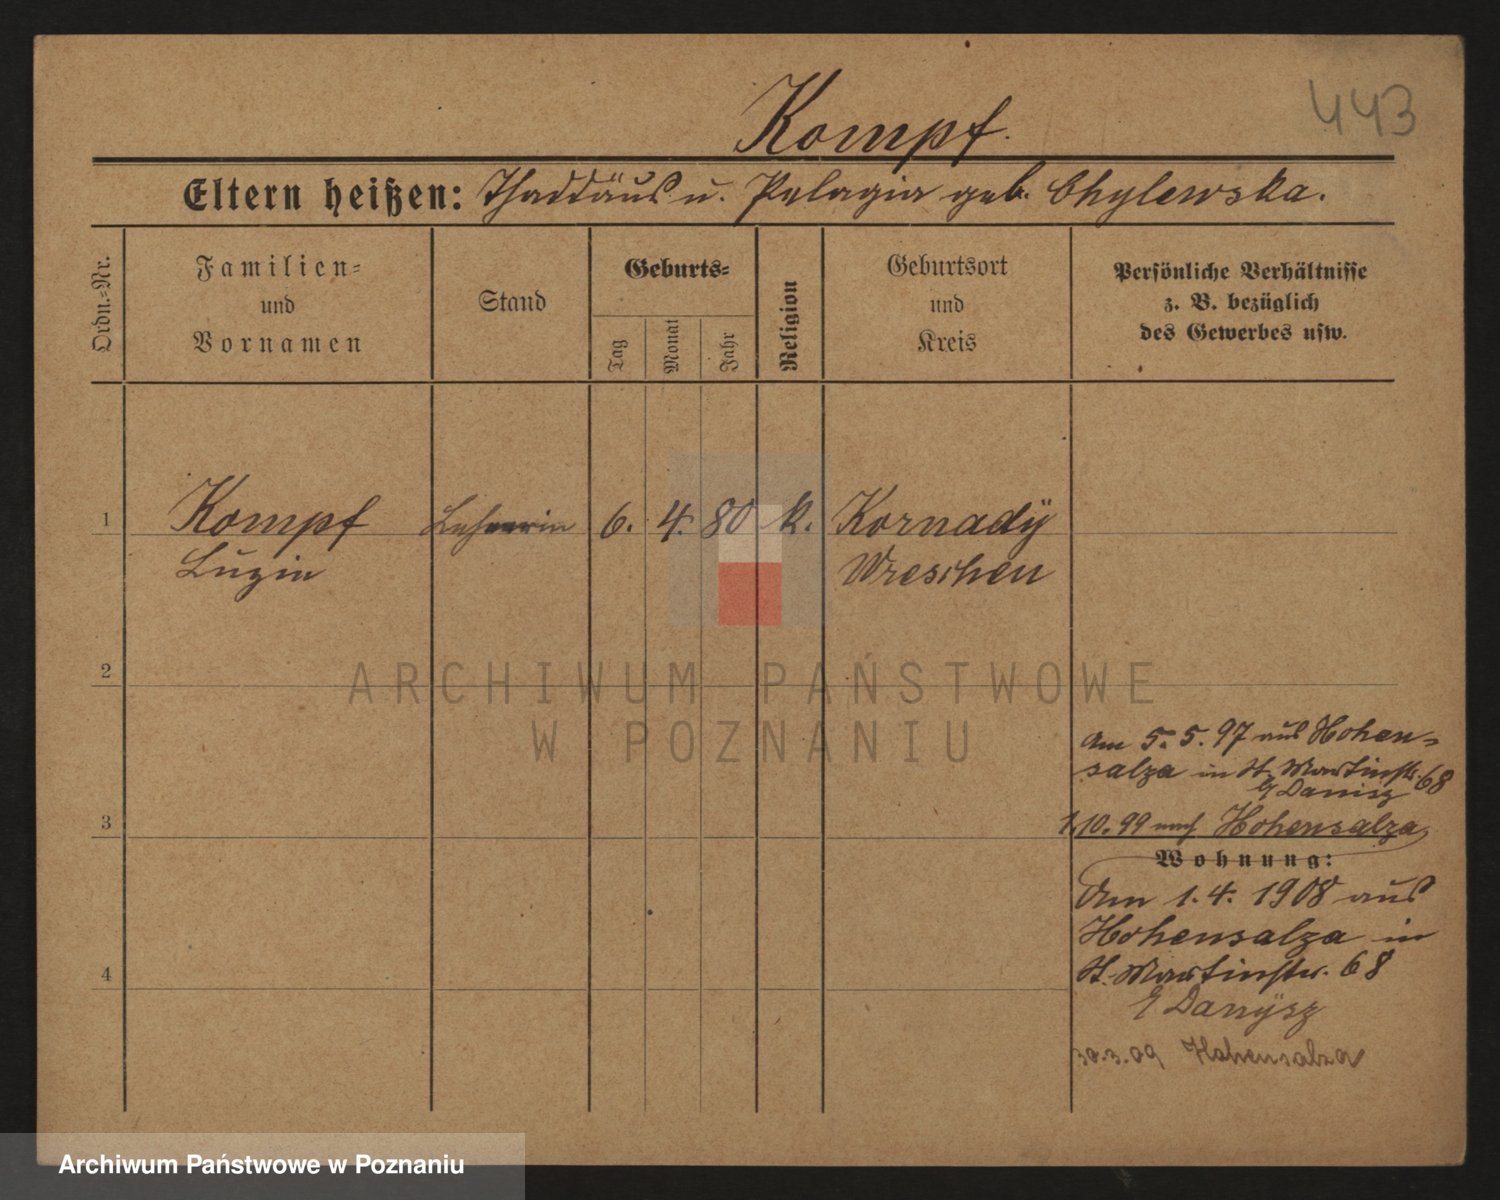 443
Kompf.
Eltern heißen: Thaddäus u. Pelagia geb. Chylewska.
Ordn.=Nr.
Familien=
und
Vornamen
Stand
Geburts=
Tag
Monat
Jahr
Religion
Geburtsort
und
Kreis
Persönliche Verhältnisse
z. B. bezüglich
des Gewerbes usw.
1
Kompf Lehrerin 6. 4. 80 k. Kornadÿ
Luzia Wreschen
2
ARCHIWUM PAŃSTWOWE
W POZNANIU
am 5. 5. 97 aus Hohen=
salza in St. Martinstr. 68
b/ Danisz
3
1.10. 99 nach Hohensalza
Wohnung:
Am 1. 4. 1908 aus
Hohensalza in
St. Martinstr. 68
4
b/ Danÿsz
30.3.09 Hohensalza
Archiwum Państwowe w Poznaniu